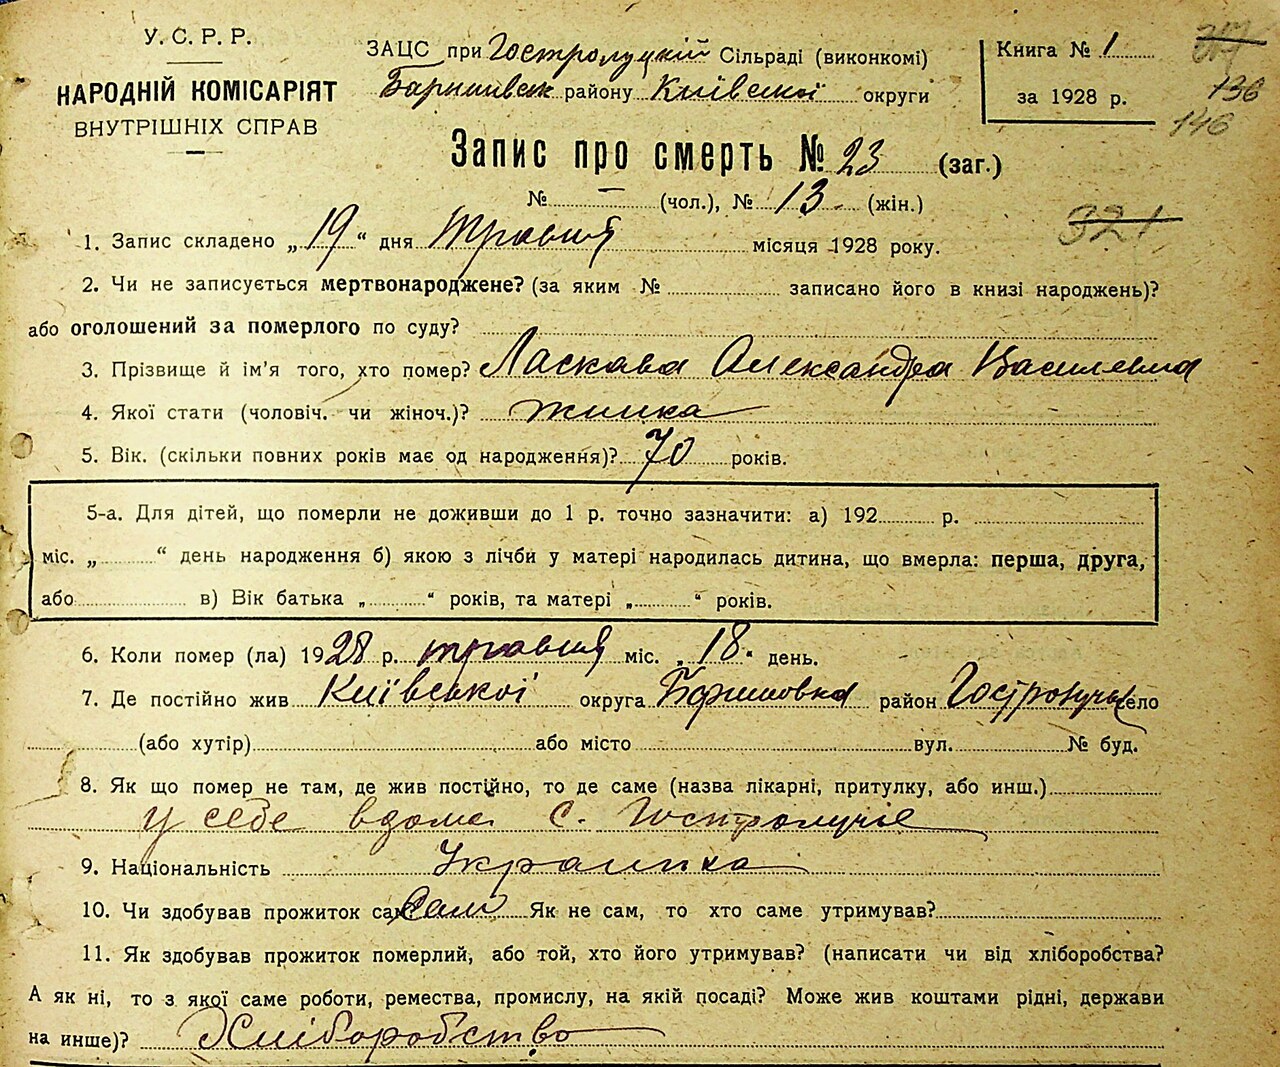 У. С. Р. Р.
НАРОДНІЙ КОМІСАРІЯТ
ВНУТРІШНІХ СПРАВ
ЗАЦС при Гостролуцкій Сільраді (виконкомі)
Баришівск району Київської округи
Книга № 1
за 1928 р.
136
146
Запис про смерть № 23 (заг.)
№ — (чол.), № 13 (жін.)
321
1. Запис складено „ 19 “ дня травня місяця 1928 року.
2. Чи не записується мертвонароджене? (за яким № записано його в книзі народжень)?
або оголошений за померлого по суду?
3. Прізвище й ім'я того, хто помер? Ласкава Александра Василевна
4. Якої стати (чоловіч. чи жіноч.)? жинка
5. Вік. (скільки повних років має од народження)? 70 років.
5-а. Для дітей, що померли не доживши до 1 р. точно зазначити: а) 192 р.
міс. „ “ день народження б) якою з лічби у матері народилась дитина, що вмерла: перша, друга,
або в) Вік батька „ “ років, та матері „ “ років.
6. Коли помер (ла) 1928 р. травня міс. „ 18 “ день.
7. Де постійно жив Київської округа Баришовка район Гостролучье село
(або хутір) або місто вул. № буд.
8. Як що помер не там, де жив постійно, то де саме (назва лікарні, притулку, або инш.)
у себе вдома с. Гостролучіе
9. Національність Украинка
10. Чи здобував прожиток сам Сам Як не сам, то хто саме утримував?
11. Як здобував прожиток померлий, або той, хто його утримував? (написати чи від хліборобства?
А як ні, то з якої саме роботи, ремества, промислу, на якій посаді? Може жив коштами рідні, держави
на инше)? Хліборобство